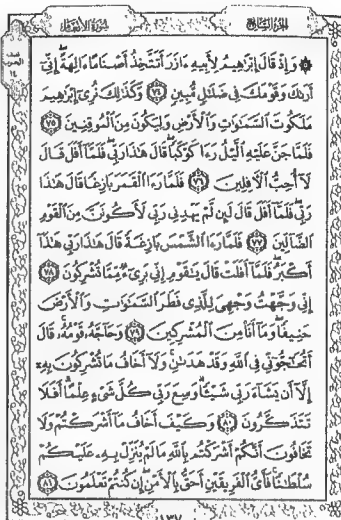 سُورَةُ الأَنْعَامِ
الجُزْءُ السَّابِعُ
نصف
الحزب
١٤
۞ وَإِذْ قَالَ إِبْرَٰهِيمُ لِأَبِيهِ ءَازَرَ أَتَتَّخِذُ أَصْنَامًا ءَالِهَةً ۖ إِنِّىٓ
أَرَىٰكَ وَقَوْمَكَ فِى ضَلَٰلٍ مُّبِينٍ ٧٤ وَكَذَٰلِكَ نُرِىٓ إِبْرَٰهِيمَ
مَلَكُوتَ ٱلسَّمَٰوَٰتِ وَٱلْأَرْضِ وَلِيَكُونَ مِنَ ٱلْمُوقِنِينَ ٧٥
فَلَمَّا جَنَّ عَلَيْهِ ٱلَّيْلُ رَءَا كَوْكَبًا ۖ قَالَ هَٰذَا رَبِّى ۖ فَلَمَّآ أَفَلَ قَالَ
لَآ أُحِبُّ ٱلْءَافِلِينَ ٧٦ فَلَمَّا رَءَا ٱلْقَمَرَ بَازِغًا قَالَ هَٰذَا
رَبِّى ۖ فَلَمَّآ أَفَلَ قَالَ لَئِن لَّمْ يَهْدِنِى رَبِّى لَأَكُونَنَّ مِنَ ٱلْقَوْمِ
ٱلضَّآلِّينَ ٧٧ فَلَمَّا رَءَا ٱلشَّمْسَ بَازِغَةً قَالَ هَٰذَا رَبِّى هَٰذَآ
أَكْبَرُ ۖ فَلَمَّآ أَفَلَتْ قَالَ يَٰقَوْمِ إِنِّى بَرِىٓءٌ مِّمَّا تُشْرِكُونَ ٧٨
إِنِّى وَجَّهْتُ وَجْهِىَ لِلَّذِى فَطَرَ ٱلسَّمَٰوَٰتِ وَٱلْأَرْضَ
حَنِيفًا ۖ وَمَآ أَنَا۠ مِنَ ٱلْمُشْرِكِينَ ٧٩ وَحَآجَّهُۥ قَوْمُهُۥ ۚ قَالَ
أَتُحَٰٓجُّوٓنِّى فِى ٱللَّهِ وَقَدْ هَدَىٰنِ ۚ وَلَآ أَخَافُ مَا تُشْرِكُونَ بِهِۦٓ
إِلَّآ أَن يَشَآءَ رَبِّى شَيْـًٔا ۗ وَسِعَ رَبِّى كُلَّ شَىْءٍ عِلْمًا ۗ أَفَلَا
تَتَذَكَّرُونَ ٨٠ وَكَيْفَ أَخَافُ مَآ أَشْرَكْتُمْ وَلَا
تَخَافُونَ أَنَّكُمْ أَشْرَكْتُم بِٱللَّهِ مَا لَمْ يُنَزِّلْ بِهِۦ عَلَيْكُمْ
سُلْطَٰنًا ۚ فَأَىُّ ٱلْفَرِيقَيْنِ أَحَقُّ بِٱلْأَمْنِ ۖ إِن كُنتُمْ تَعْلَمُونَ ٨١
١٣٧